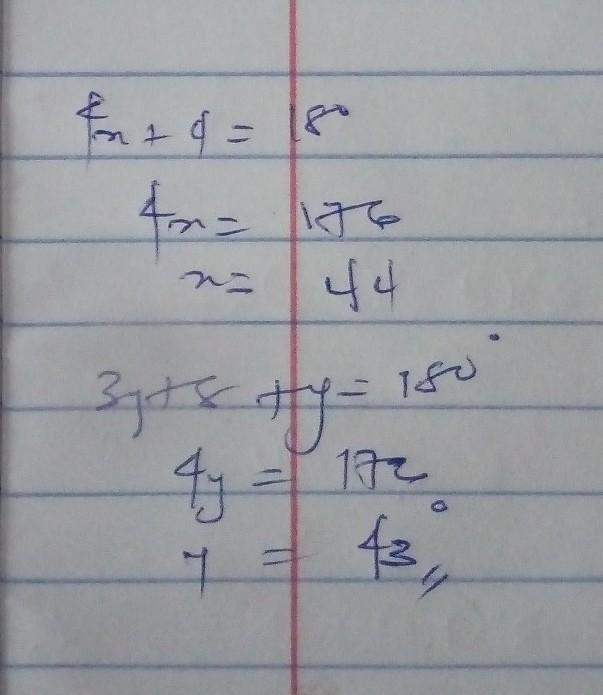 4x + 4 = 180
4x = 176
x = 44
3y+8 +y = 180°
4y = 172
y = 43°,,